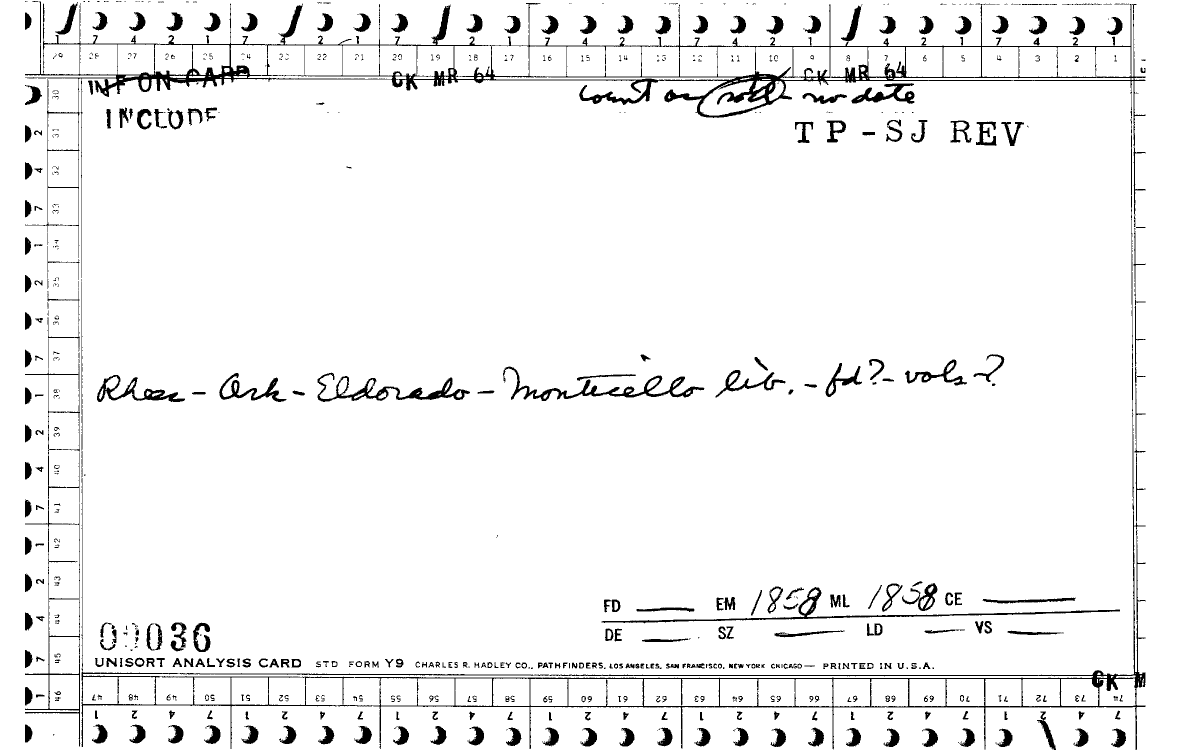 7 4 2 1 7 4 2 1 7 4 2 1 7 4 2 1 7 4 2 1 7 4 2 1 7 4 2 1
29 28 27 26 25 24 23 22 21 20 19 18 17 16 15 14 13 12 11 10 9 8 7 6 5 4 3 2 1
INF ON CARD CK MR 64 CK MR 64
count as no date
INCLUDE
TP-SJ REV
30
31
32
33
34
35
36
37
Rhees - Ark - Eldorado - Monticello lib. - fd? - vols - ?
38
39
40
41
42
43
44
45
46
FD EM 1858 ML 1858 CE
DE SZ LD VS
00036
UNISORT ANALYSIS CARD STD FORM Y9 CHARLES R. HADLEY CO., PATHFINDERS, LOS ANGELES, SAN FRANCISCO, NEW YORK CHICAGO — PRINTED IN U.S.A.
CK M
47 48 49 50 51 52 53 54 55 56 57 58 59 60 61 62 63 64 65 66 67 68 69 70 71 72 73 74
1 2 4 7 1 2 4 7 1 2 4 7 1 2 4 7 1 2 4 7 1 2 4 7 1 2 4 7